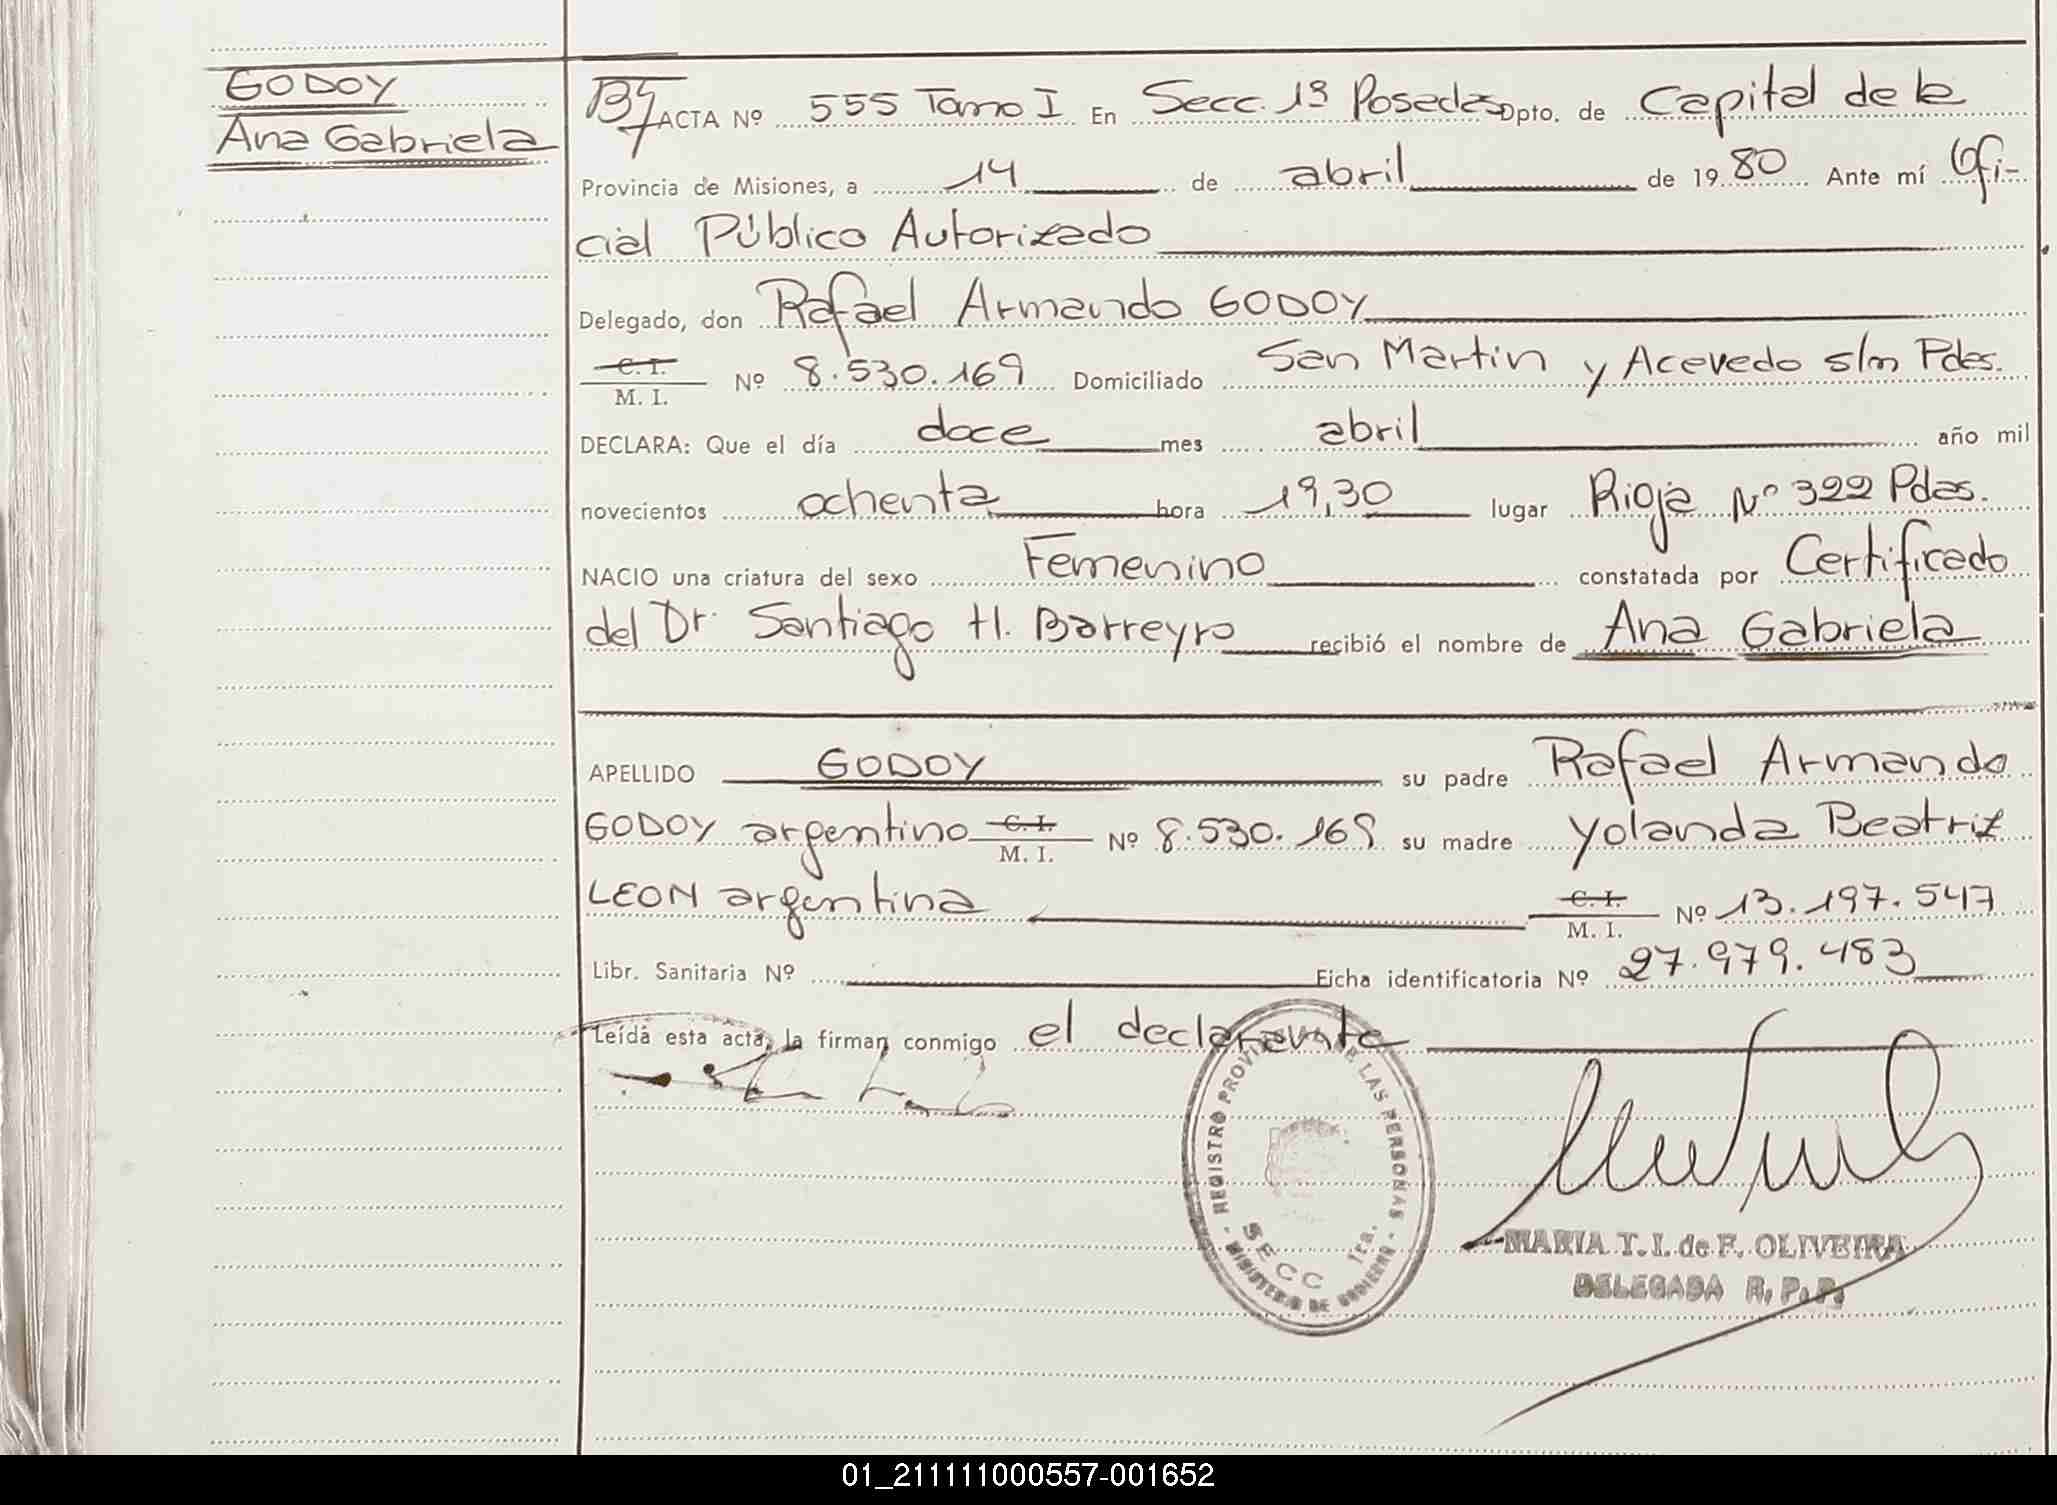 GODOY
Ana Gabriela
ACTA Nº 555 Tomo I En Secc. 1ª Posadas Dpto. de Capital de la
Provincia de Misiones, a 14 de abril de 1980 Ante mí Ofi-
cial Público Autorizado
Delegado, don Rafael Armando GODOY
C. I.
M. I. Nº 8.530.169 Domiciliado San Martin y Acevedo s/n Pdas.
DECLARA: Que el día doce mes abril año mil
novecientos ochenta hora 19,30 lugar Rioja Nº 322 Pdas.
NACIO una criatura del sexo Femenino constatada por Certificado
del Dr Santiago H. Barreyro recibió el nombre de Ana Gabriela
APELLIDO GODOY su padre Rafael Armando
GODOY argentino C. I. M. I. Nº 8.530.169 su madre Yolanda Beatriz
LEON argentina C. I. M. I. Nº 13.197.547
Libr. Sanitaria Nº Ficha identificatoria Nº 27.979.483
Leída esta acta, la firman conmigo el declarante
REGISTRO PROVINCIAL DE LAS PERSONAS
SECC 1ra.
- MINISTERIO DE GOBIERNO -
MARIA T. I. de F. OLIVEIRA
DELEGADA R. P. P.
01_211111000557-001652